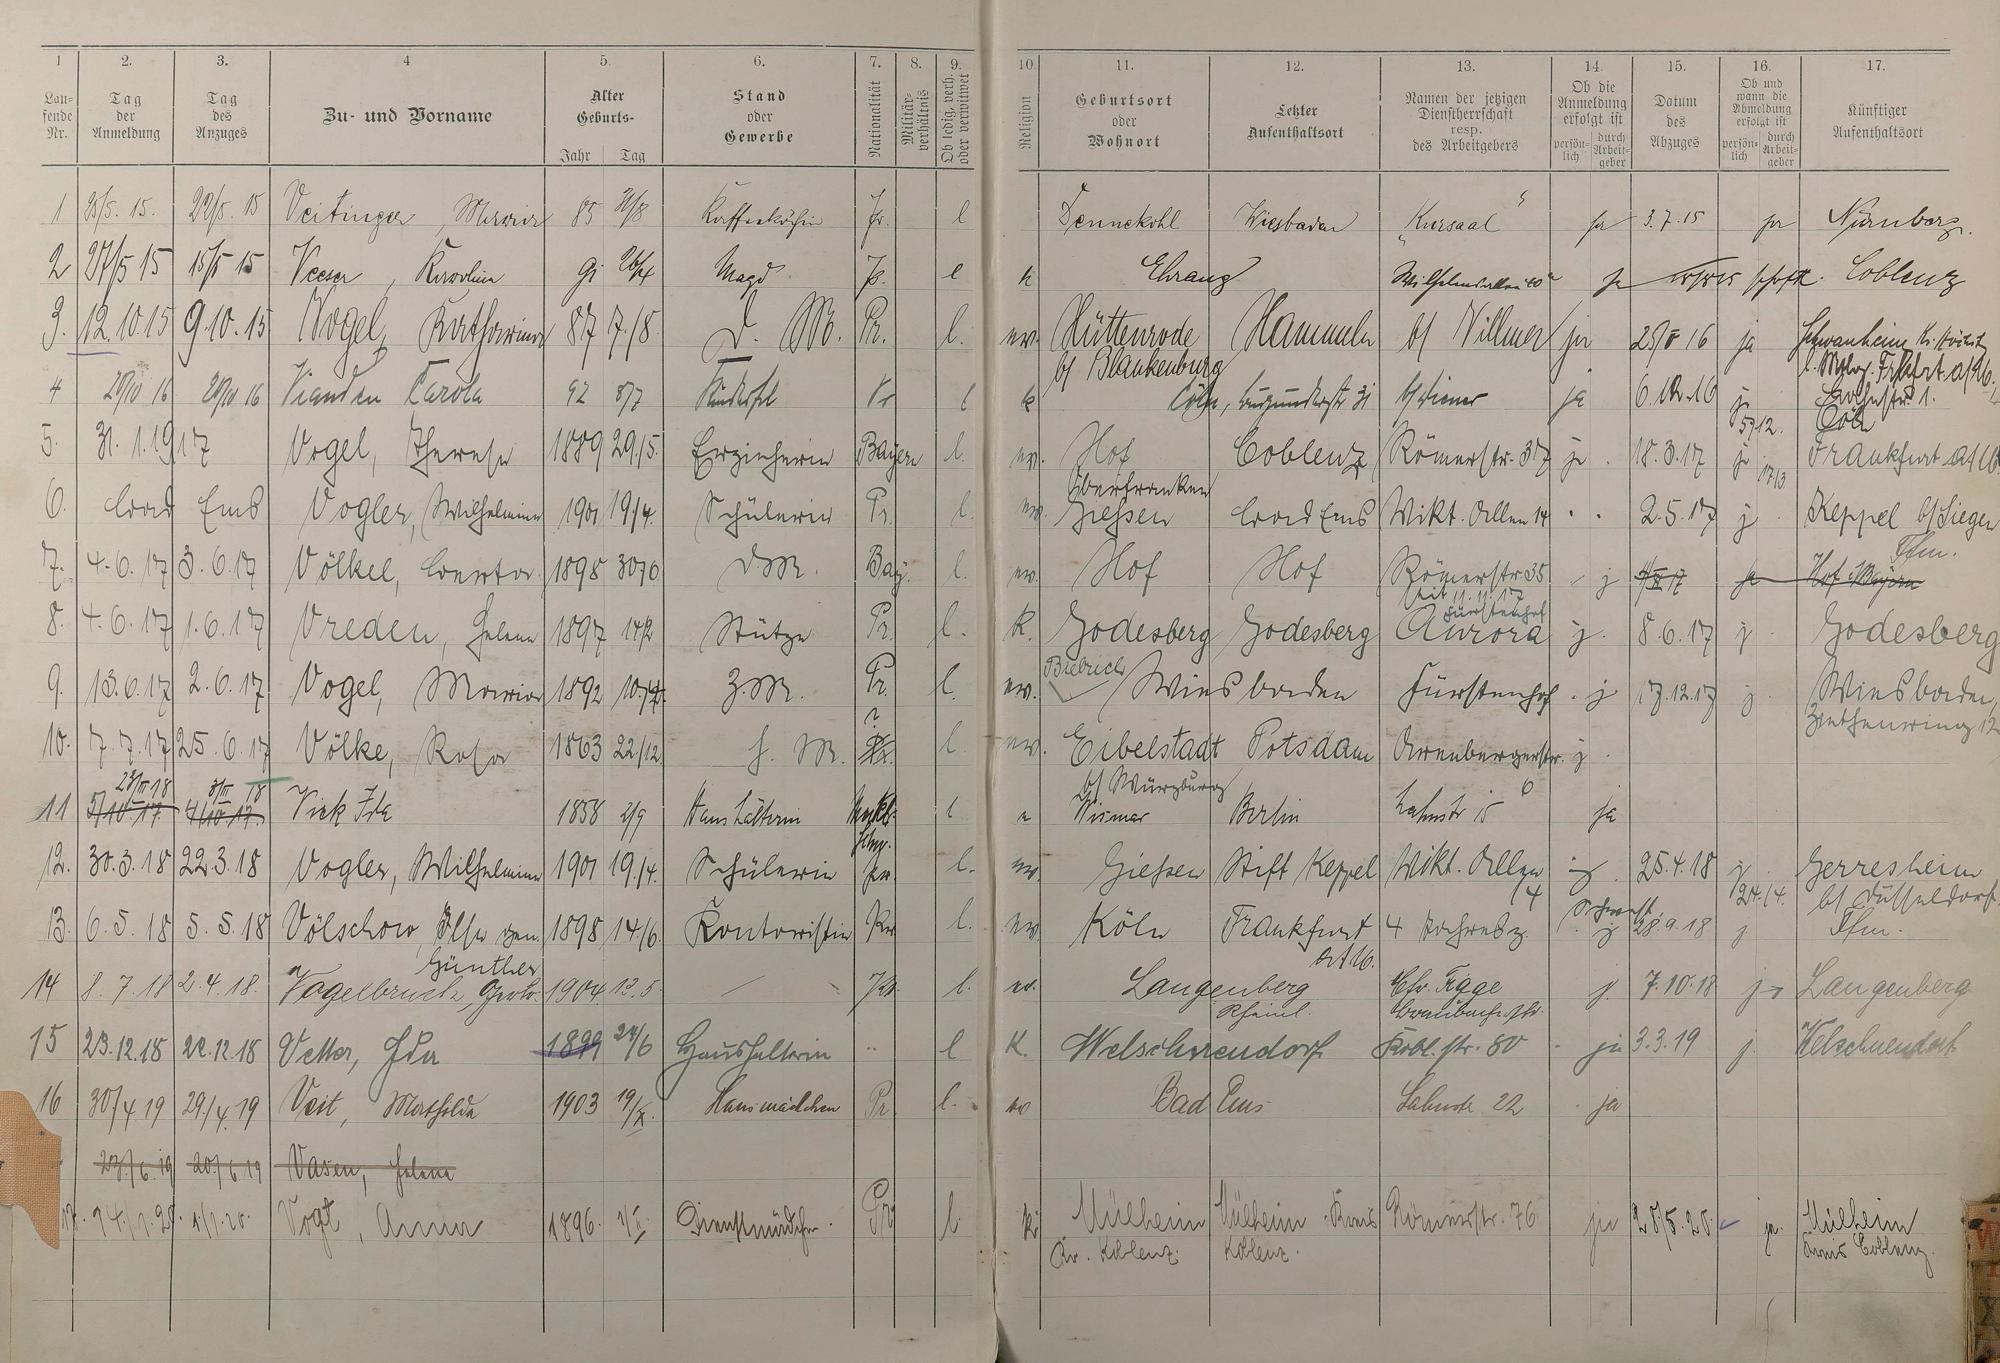 1 2. 3. 4 5. 6. 7. 8. 9. 10. 11. 12. 13. 14. 15. 16. 17.
Laufende Nr. Tag der Anmeldung Tag des Anzuges Zu- und Vorname Alter Geburts- Jahr Tag Stand oder Gewerbe Nationalität Militärverhältnis Ob ledig, verh. oder verwitwet Religion Geburtsort oder Wohnort Letzter Aufenthaltsort Namen der jetzigen Dienstherrschaft resp. des Arbeitgebers Ob die Anmeldung erfolgt ist persönlich durch Arbeitgeber Datum des Abzuges Ob und wann die Abmeldung erfolgt ist persönlich durch Arbeitgeber Künftiger Aufenthaltsort
1 25/5. 15. 22/5. 15 Veitinger, Maria 85 31/8 Kaffeeköchin l Dennelohl Wiesbaden „Kursaal“ ja 3.7.15 ja Nürnberg.
2 27/5 15 15/5 15 Veeser, Karoline 91 26/4 Magd l k Ehrang ja Coblenz
3. 12.10.15 9.10.15 Vogel, Katharina 87 7/8 D. M. Pr. l. ev. Hüttenrode Hammeln b/ Villmer ja 25/V 16 ja Schwanheim
b/ Blankenburg
4 28/IV 16 28/IV 16 Vianden Carola 92 8/7 l k Cöln, b/ Wiener ja 6.12.16 j 5/12. Cöln
5. 31.1.1917 Vogel, Therese 1889 29/5. Erzieherin Bayern l. ev. Hof Coblenz Römerstr. 37 j 18.3.17 j 17/3 Frankfurt a/M
Oberfranken
6. Bad Ems Vogler, Wilhelmine 1901 19/4. Schülerin Pr. l. ev. Giessen Bad Ems Vikt. Allee 14 2.5.17 j Keppel b/Siegen
7. 4.6.17 3.6.17 Völkel, Babetta 1898 30/6 D M. Bay. l. ev. Hof Hof Römerstr 35 j 4/XI 17 ja Hof i/Bayern
seit 11.11.17
Fürstenhof
8. 4.6.17 1.6.17 Vreden, Helene 1897 14/2 Stütze Pr. l. K. Godesberg Godesberg Aurora j. 8.6.17 j Godesberg
Biebrich
9. 13.6.17 2.6.17 Vogel, Maria 1892 10/4. Z. M. Pr. l. ev. Wiesbaden Fürstenhof j 17.12.17 j Wiesbaden,
Ziethenring 12
10. 7.7.17 25.6.17 Völke, Rosa 1863 22/12 ? Pr. l. ev. Eibelstadt Potsdam Arenbergerstr. j
b/ Würzburg
28/III 18 8/III 18
11 5/10 17. 4/10 17. Vick Ida 1858 2/9 Haushälterin l e Wismar Berlin Lahnstr 15 ja
12. 30.3.18 22.3.18 Vogler, Wilhelmine 1901 19/4. Schülerin Pr. l. ev. Giessen Stift Keppel Vikt. Allee 4 j 25.4.18 j 24./4. Gerresheim
b/ Düsseldorf.
13. 6.5.18 5.5.18 Völschow Else gen. 1898 14/6. Kontoristin Pr l. ev. Köln Frankfurt j 28.9.18 j Ffm.
Günther a/M.
14 8.7.18 2.4.18. Vogelbruch, 1904 13.5 Pr. l. ev. Langenberg j. 7.10.18 j Langenberg
Rheinl.
15 23.12.18 22.12.18 Vetter, Ida 1899 24/6 Haushälterin l K. Welschneudorf Kobl. str. 80 ja 3.3.19 j. Welschneudorf
16 30/4 19 29/4 19 Veit, Mathilde 1903 19/X. Hausmädchen Pr l. ev Bad Ems Lahnstr. 22 ja
23/6.19 20/6 19 Vasen, Helene
17. 14/1.20. 1/1.20. Vogt, Anna 1896. Dienstmädchen. Pr l. k. Mülheim Mülheim Römerstr. 76 ja 28/5.20 ja. Mülheim
Kr. Koblenz. Koblenz. Coblenz.